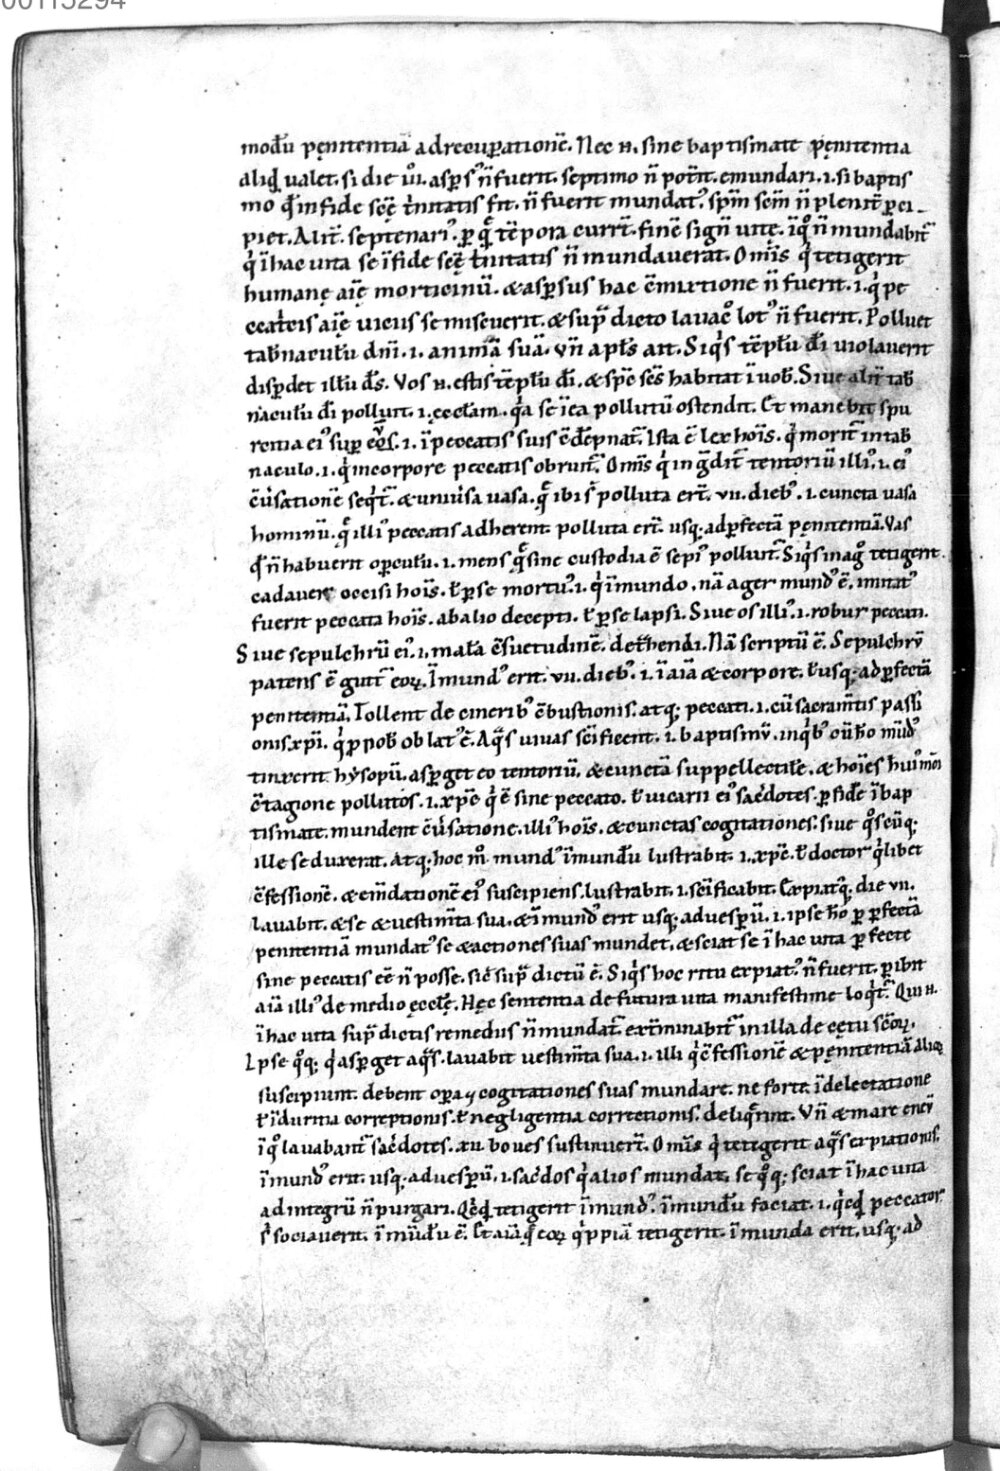 00115294
modu̅ pęnitentia̅ ad recup̲atione̅. Nec n̅. sine baptismate pęnitentia
aliq̅d ualet. si die .vii. asp̲sꝰ n̅ fuerit. septimo n̅ pot̅it. emundari. .i. si baptis
mo q̅d in fide sc̅ę t̅nitatis fit. n̅ fuerit mundatꝰ. sp̅m sc̅m n̅ plenit̅ p̲ci-
piet. Alit̅. septenariꝰ. p̲ que̅ te̅pora curr̅t. fine̅ sign̅ uitę. i̅ qͦ n̅ mundabit̅
qͥ i̅ hac uita se i̅ fide sc̅ę t̅nitatis n̅ mundauerat. Om̅is qͥ tetigerit
humanę ai̅ę morticinu̅. & asp̲sus hac c̅mixtione n̅ fuerit. .i. qͥ pec
catr̅is ai̅ę uiciis se miscuerit. & sup̅ dicto lauac̅ͦ lotꝰ n̅ fuerit. Polluet
tab̅naculu̅ dn̅i. .i. anima̅ sua̅. Vn̅ apl̅s ait. Siqͥs te̅plu̅ d̅i uiolauerit
disp̲det illu̅ d̅s. Vos n̅. estis te̅plu̅ d̅i. & sp̅c sc̅s habitat i̅ uob̅. Siue alit̅ tab̅
naculu̅ d̅i polluit. .i. ęccl̅am. qͣa se i̅ ea pollutu̅ ostendit. Et manebit spu
rcitia eiꝰ sup̲ eos. .i. i̅ peccatis suis e̅ de̅pnat̅. Ista e̅ lex ho̅is. qͥ morit̅ in tab̅
naculo. .i. qͥ in corpore peccatis obruit̅. Om̅is qͥ ingͣdit̅ tentoriu̅ illiꝰ. .i. eiꝰ
c̅u̅satione̅ seqͥt̅. & uniu̅sa uasa. quę ibi s̅ polluta er̅t. .vii. diebꝰ. .i. cuncta uasa
hominu̅. quę illiꝰ peccatis adherent. polluta er̅t. usq; ad p̲fecta̅ pęnitentia̅. Vas
q̅d n̅ habuerit op̲culu̅. .i. mens quę sine custodia e̅ sepiꝰ polluit̅. Siqͥs in agͦ tetigerit
cadauer occisi ho̅is. ł p̲ se mortuꝰ. .i. qͥ i̅ mundo. na̅ ager mundꝰ e̅. imitatꝰ
fuerit peccata ho̅is. ab alio decepti. ł p̲ se lapsi. Siue os illiꝰ. .i. robur peccati.
Siue sepulchru̅ eiꝰ. .i. mala̅ c̅suetudine̅. detrͣhendi. Na̅ scriptu̅ e̅. Sepulchru̅
patens e̅ gutt̅ eoꝝ. I̅mundꝰ erit. .vii. diebꝰ. .i. i̅ ai̅a & corpore. ł usq; ad p̲fecta̅
penitentia̅. Tollent de cineribꝰ c̅bustionis. atq; peccati. .i. cu̅ sacram̅tis passi
onis xp̅i. qͥ p̲ nob̅ oblatꝰ e̅. Aqͣs uiuas sc̅ificent. .i. baptismu̅. in qͥbꝰ cu̅ ho̅ mu̅dꝰ
tinxerit hysopu̅. asp̲get eo tentoriu̅. & cuncta̅ suppellectile̅. & ho̅ies huiꝰmo̅i
c̅tagione pollutos. .i. xp̅c qͥ e̅ sine peccato. ł uicarii eiꝰ sac̅dotes. p̲ fide̅ i̅ bap
tismate. mundent c̅u̅satione̅. illiꝰ ho̅is. & cunctas cogitationes. siue qͦscu̅q;
ille seduxerat. Atq; hoc mͦ mundꝰ i̅mundu̅ lustrabit. .i. xp̅c. ł doctor qͥlibet
c̅fessione̅. & em̅datione̅ eiꝰ suscipiens. lustrabit. .i. sc̅ificabit. Expiatq; die .vii.
Lauabit. & se & uestim̅ta sua. & i̅mundꝰ erit usq; ad uesp̲u̅. .i. ipse ho̅ p̲ p̲fecta̅
penitentia̅ mundatꝰ se & actiones suas mundet. & sciat se i̅ hac uita p̲fecte
sine peccatis e̅e n̅ posse. sic̅ sup̅ dictu̅ e̅. Siqͥs hoc ritu expiatꝰ n̅ fuerit. p̲ibit
ai̅a illiꝰ de medio ęccl̅ę. Hęc sententia de futura uita manifestime loqͥt̅. Qui n̅.
i̅ hac uita sup̅ dictis remediis n̅ mundat̅. ext̅minabit̅ in illa de cętu sc̅oꝝ.
Ipse qͦq; qͥ asp̲get aqͣs. lauabit uestim̅ta sua. .i. illi qͥ c̅fessione̅ & pęnitentia̅ alioꝝ
suscipiunt. debent op̲a & cogitationes suas mundare. ne forte i̅ delectatione
ł i̅ duritia correptionis. ł negligentia correctionis. deliqͥrint. Vn̅ & mare eneu̅
i̅ qͦ lauabant̅ sac̅dotes. .xii. boues sustinuer̅t. Om̅is qͥ tetigerit aqͣs expiationis.
i̅mundꝰ erit. usq; ad uesp̲u̅. .i. sac̅dos qͥ alios mundat. se qͦq; sciat i̅ hac uita
ad integru̅ n̅ purgari. Qͥcqͥd tetigerit i̅mundꝰ. i̅mundu̅ faciat. .i. qͥcqͥd peccatorꝰ
s̅ sociauerit. i̅mu̅du̅ e̅. Et ai̅a quę eoꝝ qͥppia̅ tetigerit. i̅munda erit. usq; ad